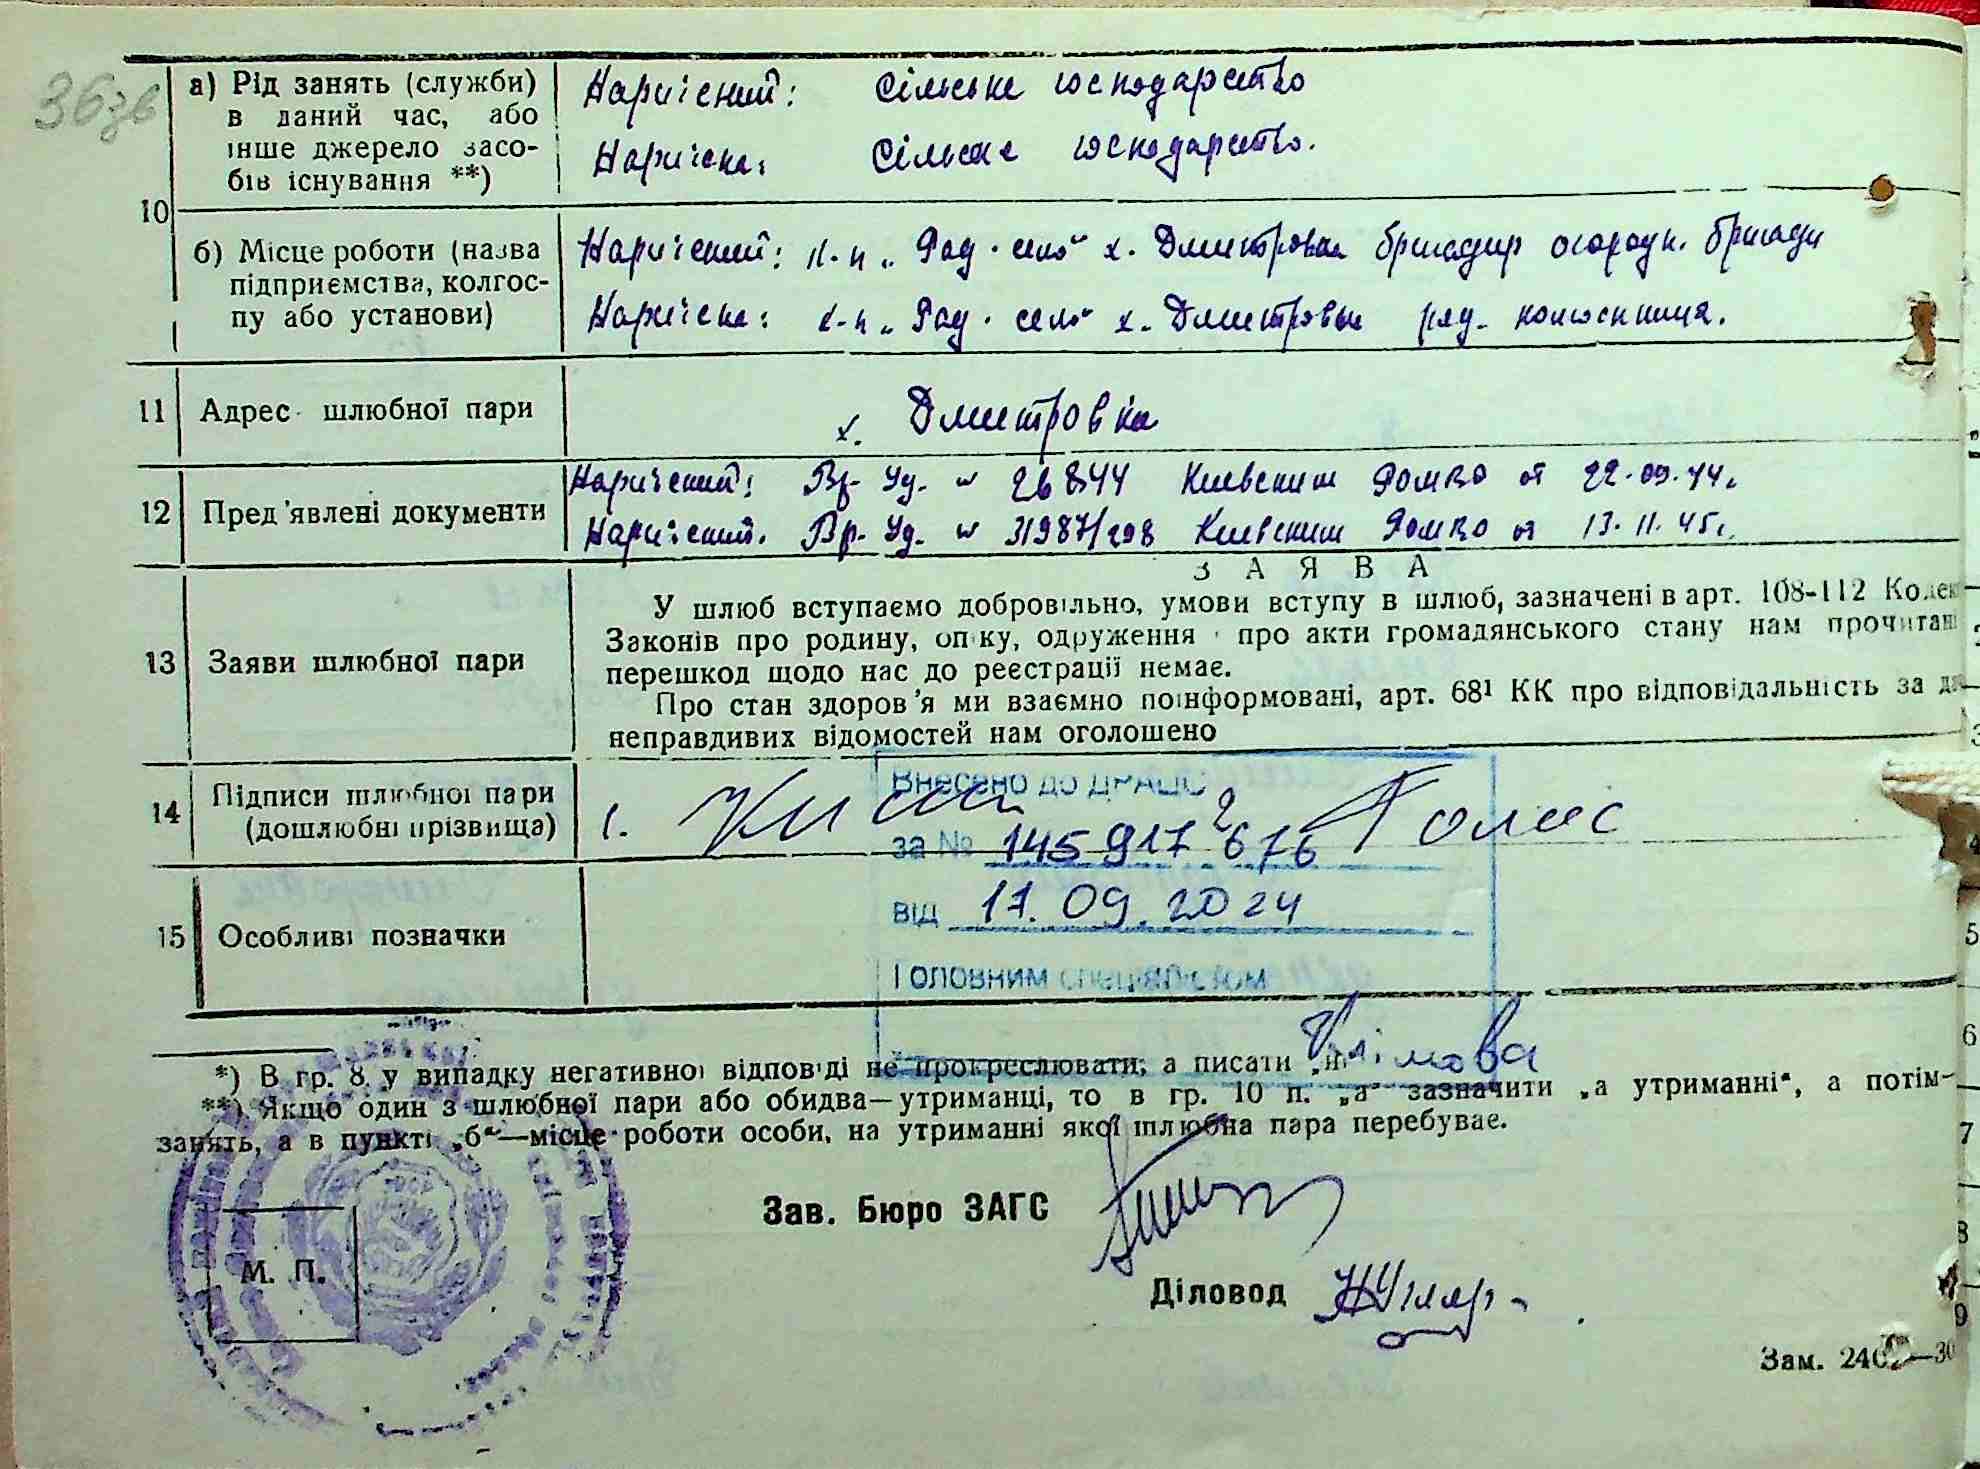 36зв
10
а) Рід занять (служби)
в даний час, або
інше джерело засо-
бів існування **)
Наречений: Сільське господарство
Наречена: Сільське господарство.
б) Місце роботи (назва
підприємства, колгос-
пу або установи)
Наречений: к-п „Рад. село" х. Дмитровка бригадир огородн. бригади
Наречена: к-п „Рад. село" х. Дмитровка ряд. колгосниця.
11 Адрес шлюбної пари
х. Дмитровка
12 Пред'явлені документи
Наречений: Вр. Уд. № 26844 Киевским РОМВД от 22.09.44.
Наречений. Вр. Уд. № 31987/298 Киевским РОМВД от 13.11.45г.
ЗАЯВА
13 Заяви шлюбної пари
У шлюб вступаємо добровільно, умови вступу в шлюб, зазначені в арт. 108-112 Кодек
Законів про родину, опіку, одруження і про акти громадянського стану нам прочитан
перешкод щодо нас до реєстрації немає.
Про стан здоров'я ми взаємно поінформовані, арт. 68¹ КК про відповідальність за д
неправдивих відомостей нам оголошено
14 Підписи шлюбної пари
(дошлюбні прізвища)
1. 2
Внесено до ДРАЦС
за № 145 917 676
від 17.09.2024
Головним спеціалістом
Клімова
15 Особливі позначки
*) В гр. 8. у випадку негативної відповіді не прокреслювати; а писати „н
**) Якщо один з шлюбної пари або обидва—утриманці, то в гр. 10 п. „а" зазначити „а утриманні", а потім—
занять, а в пункті „б"—місце роботи особи, на утриманні якої шлюбна пара перебуває.
Зав. Бюро ЗАГС
М. П.
Діловод
Зам. 240 —30
3
4
5
6
7
8
9